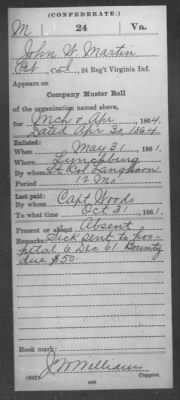 (CONFEDERATE.)
M | 24 | Va.
John W. Martin
Pvt, Co. , 24 Reg't Virginia Inf.
Appears on
Company Muster Roll
of the organization named above,
for Mch & Apr, 1864.
Dated Apr 30, 1864
Enlisted:
When May 31, 1861.
Where Lynchburg
By whom Lt Col Langhorn
Period 12 Mo.
Last paid:
By whom Capt Woods
To what time Oct 31, 1861.
Present or absent Absent
Remarks: Sick sent to hos-
pital 6 Dec 61 Bounty
due $50.
Book mark:
J W William
Copyist.